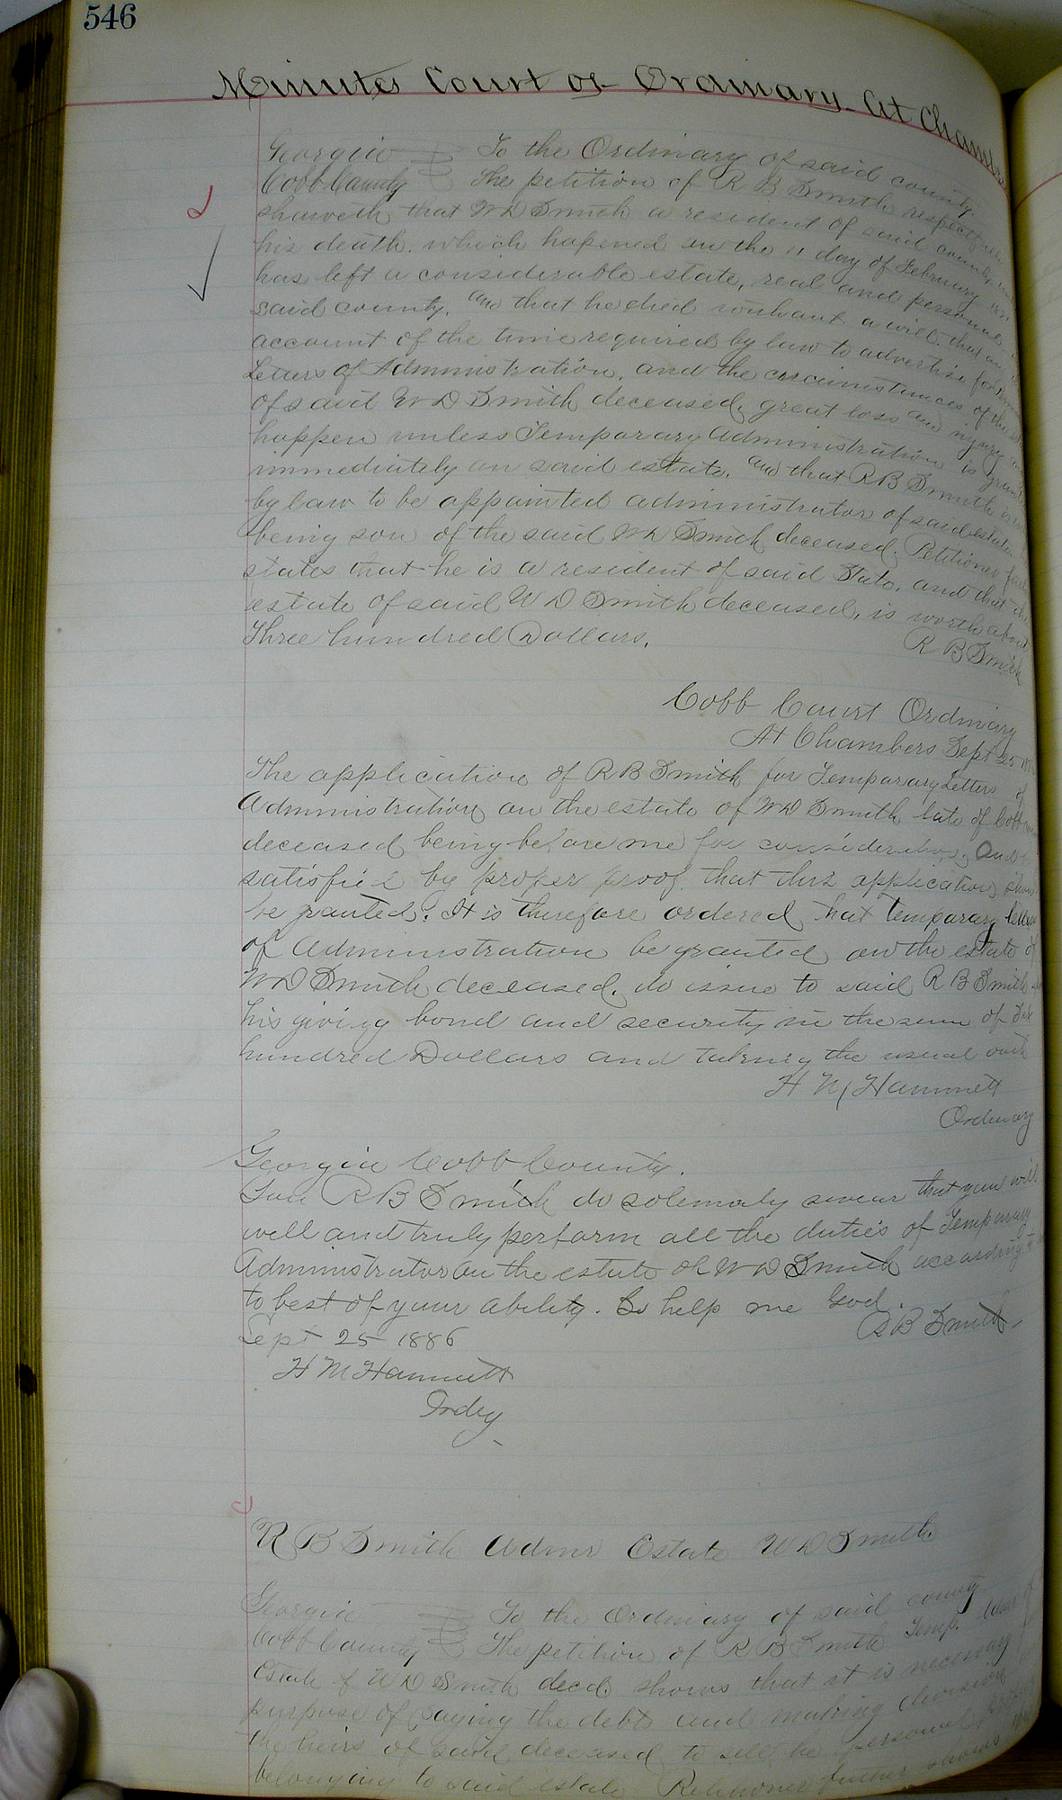 546
Minutes Court of Ordinary At Chambers
Georgia To the Ordinary of said county
Cobb County The petition of R B Smith respectfully
sheweth that W D Smith a resident of said county
his death. which hapened on the 11 day of February
has left a considerable estate, real and personal
said county, and that he died without a will. that on
account of the time required by law to advertise for
Letters of Administration. and the circumstances of the
of said W D Smith deceased, great loss and injury
happen unless Temporary Administration is
immediately on said estate. and that R B Smith
by law to be appointed administrator of said estate
being son of the said W D Smith deceased. Petitioner
states that he is a resident of said State. and that the
estate of said W D Smith deceased, is worth about
Three hundred Dollars.
R B Smith
Cobb Court Ordinary
At Chambers Sept 25
The application of R B Smith for Temporary Letters of
Administration on the estate of W D Smith late of Cobb
deceased being before me for consideration, And
satisfied by proper proof that this application should
be granted. It is therefore ordered that Temporary letters
of Administration be granted on the estate of
W D Smith deceased. do issue to said R B Smith
his giving bond and security in the sum of Six
hundred Dollars and taking the usual oath
H M Hammett
Ordinary
Georgia Cobb County.
You R B Smith do solemnly swear that you will
well and truly perform all the duties of Temporary
Administrator on the estate of W D Smith according
to best of your ability. So help me God.
R B Smith
Sept 25 1886
H M Hammett
Ordy
R B Smith Admr Estate W D Smith
Georgia To the Ordinary of said county
Cobb County The petition of R B Smith Temp.
Estate of W D Smith decd. shows that it is necessary
purpose of paying the debts and making division
the heirs of said deceased to sell the personal
belonging to said estate Petitioner further shows